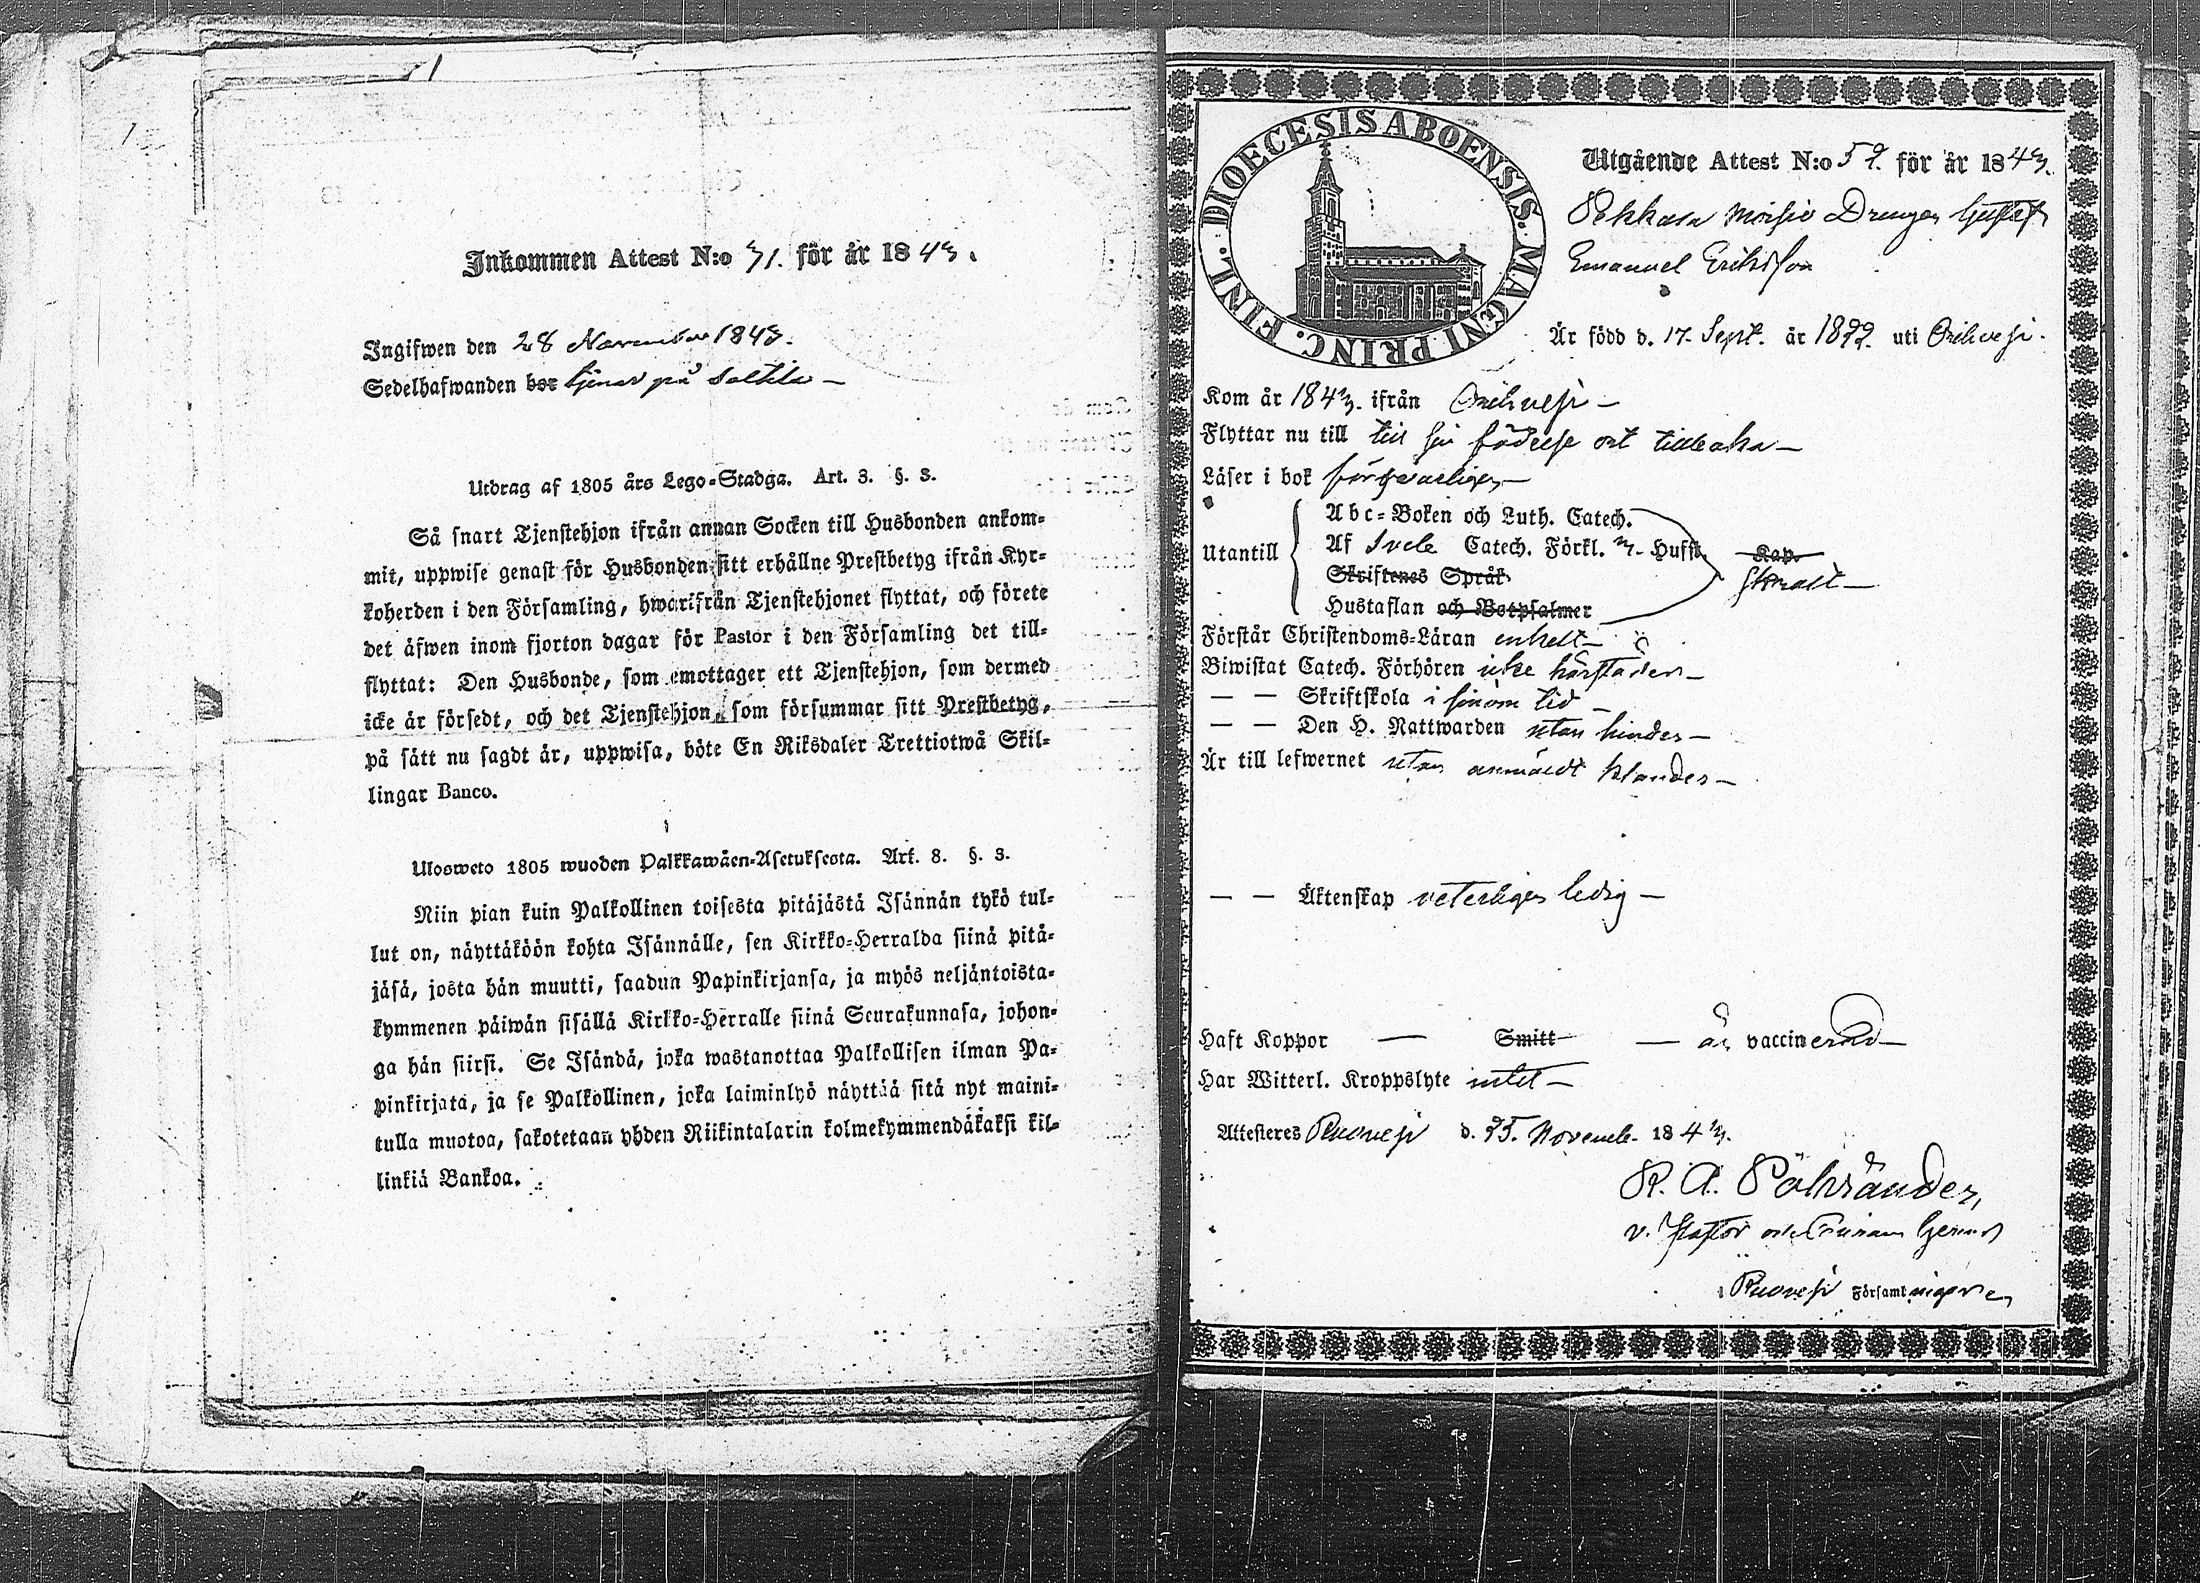 Inkommen Attest N:o 31. för år 1843.
Ingifwen den 28 November 1843.
Sedelhafwanden bor tjenar på
Utdrag af 1805 års Lego-Stadga. Art. 3. §. 3.
Så snart Tjenstehjon ifrån annan Socken till Husbonden ankom-
mit, uppwise genast för Husbonden sitt erhållne Prestbetyg ifrån Kyr-
koherden i den Församling, hwarifrån Tjenstehjonet flyttat, och förete
det äfwen inom fjorton dagar för Pastor i den Församling det till-
flyttat: Den Husbonde, som emottager ett Tjenstehjon, som dermed
icke är försedt, och det Tjenstehjon, som försummar sitt Prestbetyg,
på sätt nu sagdt är, uppwisa, böte En Riksdaler Trettiotwå Skil-
lingar Banco.
Ulosweto 1805 wuoden Palkkawäen-Asetuksesta. Art. 3. §. 3.
Niin pian kuin Palkollinen toisesta pitäjästä Isännän tykö tul-
lut on, näyttäköön kohta Isännälle, sen Kirkko-Herralda siinä pitä-
jäsä, josta hän muutti, saadun Papinkirjansa, ja myös neljäntoista-
kymmenen päiwän sisällä Kirkko-Herralle siinä Seurakunnasa, johon-
ga hän siirsi. Se Isändä, joka wastanottaa Palkollisen ilman Pa-
pinkirjata, ja se Palkollinen, joka laiminlyö näyttää sitä nyt maini-
tulla muotoa, sakotetaan yhden Riikintalarin kolmekymmendäkaksi kil-
linkiä Bankoa.
DIOECESIS ABOENSIS. MAGNI PRINC. FINL.
Utgående Attest N:o 59. för år 1843.
Pekkala Moisio Drengen Gustaf
Emanuel Eriksson
Är född d. 17. Sept. år 1822. uti Orihvesi.
Kom år 1843. ifrån Orihvesi—
Flyttar nu till till sin födelse ort tillbaka—
Läser i bok försvarligen—
Utantill
Abc-Boken och Luth. Catech.
Af Sveb. Catech. Förkl. m. Hufst. Kap.
Skriftenes Språk
Hustaflan och Botpsalmer
svagt—
Förstår Christendoms-Läran enkelt—
Biwistat Catech. Förhören icke härstädes—
— — Skriftskola i sinom tid—
— — Den H. Nattwarden utan hinder—
Är till lefwernet utan anmäldt klander—
— — Äktenskap veterligen ledig—
Haft Koppor — Smitt — är vaccinerad—
Har Witterl. Kroppslyte intet—
Attesteres Ruovesi d. 25. Novemb. 1843.
v. Pastor
Ruovesi Församlingen